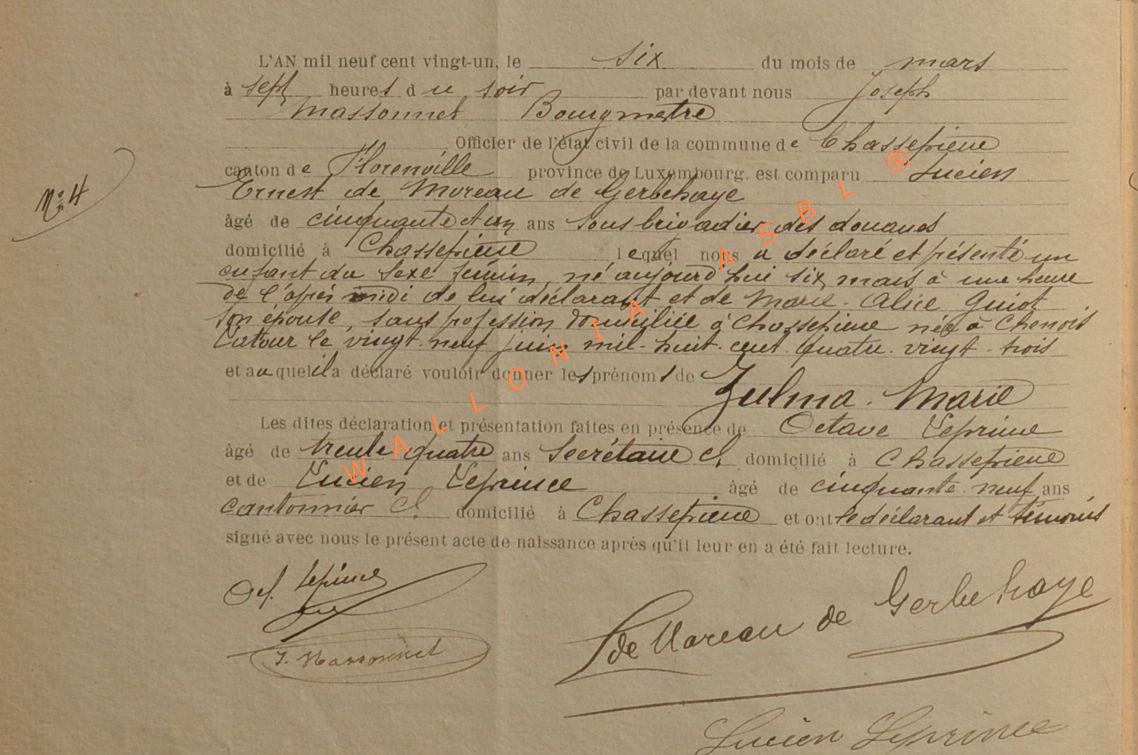 L'AN mil neuf cent vingt-un, le six du mois de mars
à sept heures du soir par devant nous Joseph
Massonnet Bourgmetre
Officier de l'état civil de la commune de Chassepierre
N° 4
canton de Florenville province de Luxembourg est comparu Lucien
Ernest de Moreau de Gerbehaye
âgé de cinquante et un ans sous brigadier des douanes
domicilié à Chassepierre lequel nous a déclaré et présenté un
enfant du sexe feminin, né aujourd'hui six mars à une heure
de l'après midi de lui déclarant et de Marie-Alice Guiot
son épouse, sans profession domiciliée à Chassepierre née à Chenois
Latour le vingt-neuf juin mil-huit-cent-quatre-vingt-trois
et auquel il a déclaré vouloir donner les prénoms de Zulma-Marie
Les dites déclaration et présentation faites en présence de Octave Leprince
âgé de trente quatre ans Secrétaire cl. domicilié à Chassepierre
et de Lucien Leprince âgé de cinquante-neuf ans
cantonnier cl. domicilié à Chassepierre et ont le déclarant et témoins
signé avec nous le présent acte de naissance après qu'il leur en a été fait lecture.
Oct. Leprince
J. Massonnet
L de Moreau de Gerbehaye
Lucien Leprince
WALLONIA ASBL ®